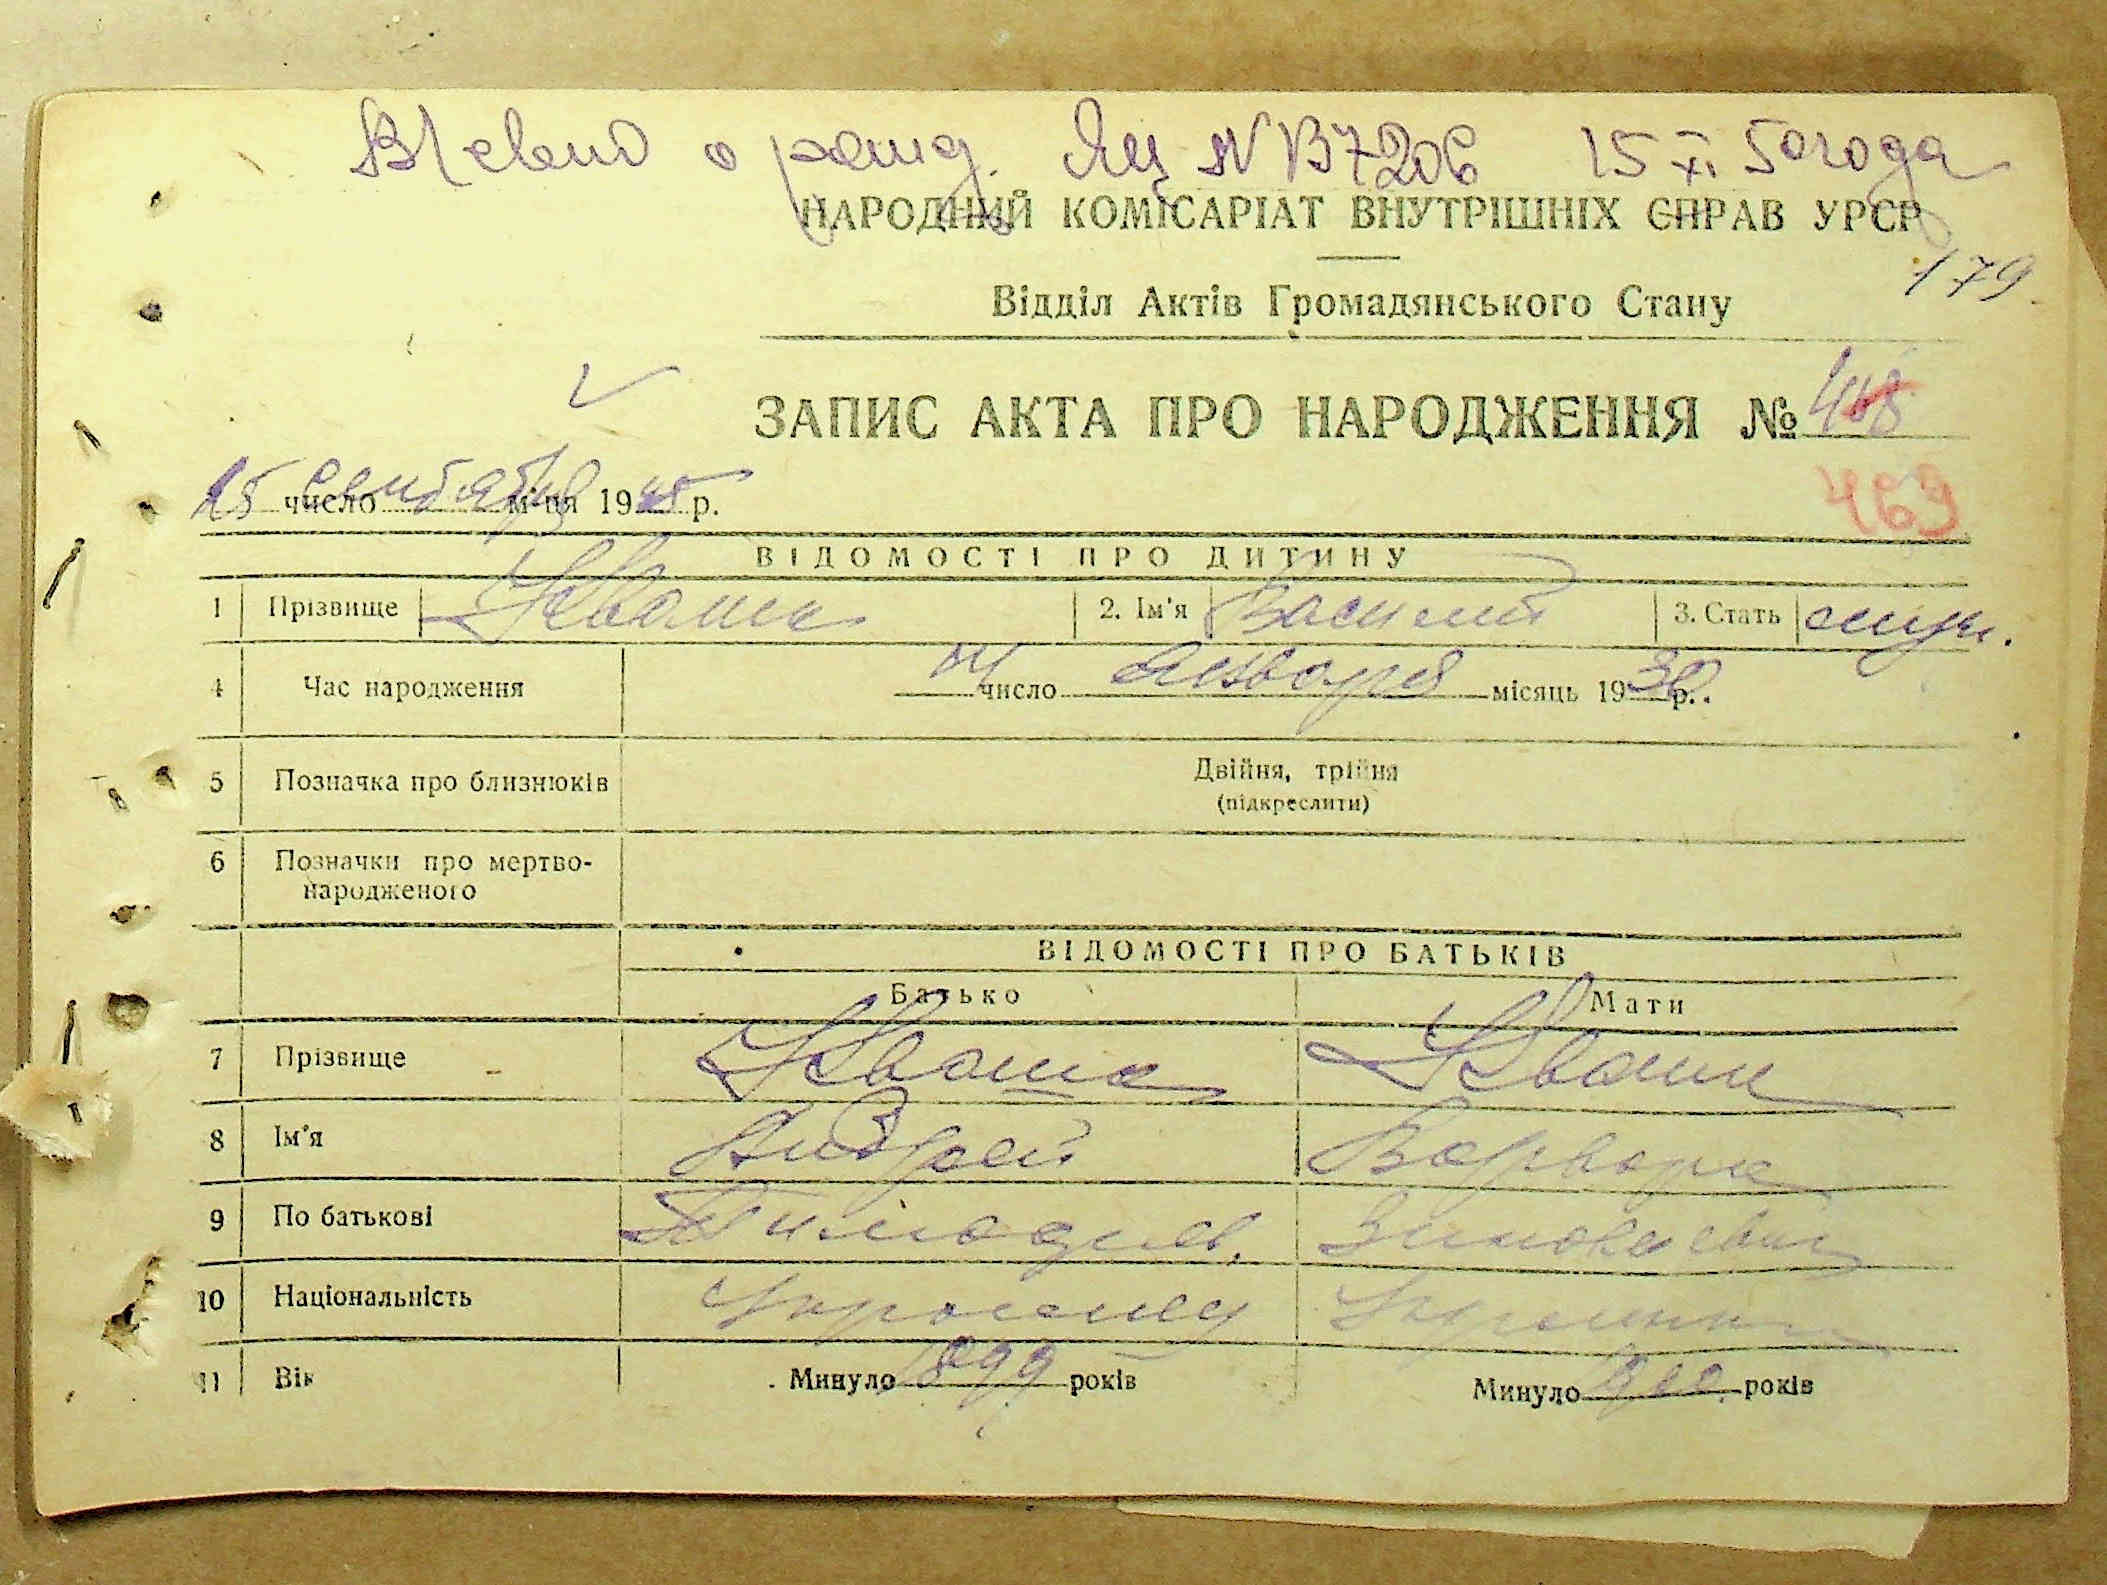 В/свид о рожд. ЯЦ № 137206 15 XI 50 года
НАРОДНИЙ КОМІСАРІАТ ВНУТРІШНІХ СПРАВ УРСР
179
Відділ Актів Громадянського Стану
ЗАПИС АКТА ПРО НАРОДЖЕННЯ № 468
469
25 число сентября м-ця 1945 р.
ВІДОМОСТІ ПРО ДИТИНУ
1 Прізвище Кваша 2. Ім'я Василий 3. Стать муж.
4 Час народження число января місяць 1930 р.
5 Позначка про близнюків Двійня, трійня
(підкреслити)
6 Позначки про мертво-
народженого
ВІДОМОСТІ ПРО БАТЬКІВ
Батько Мати
7 Прізвище Кваша Кваша
8 Ім'я Андрей Варвара
9 По батькові Зиновьевна
10 Національність Украинец Украинка
11 Вік Минуло 1899 років Минуло 1900 років